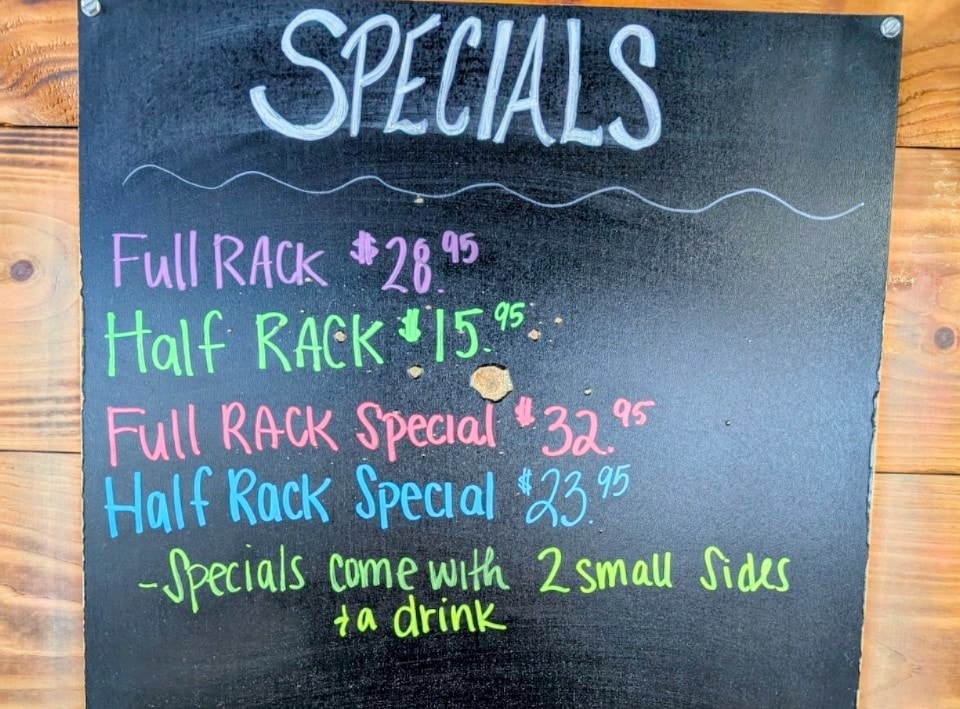 SPECIALS
Full RACK $28.95
Half RACK $15.95
Full RACK Special $32.95
Half Rack Special $23.95
- Specials come with 2 small Sides
+ a drink